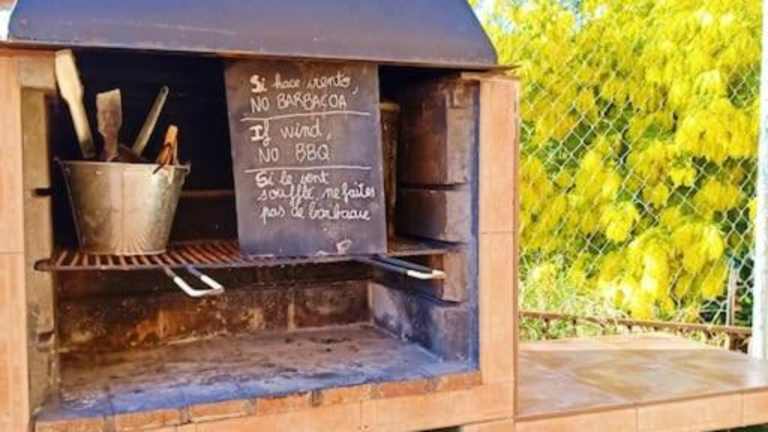 Si hace viento,
NO BARBACOA
If wind,
NO BBQ
Si le vent
souffle, ne faites
pas de barbacue